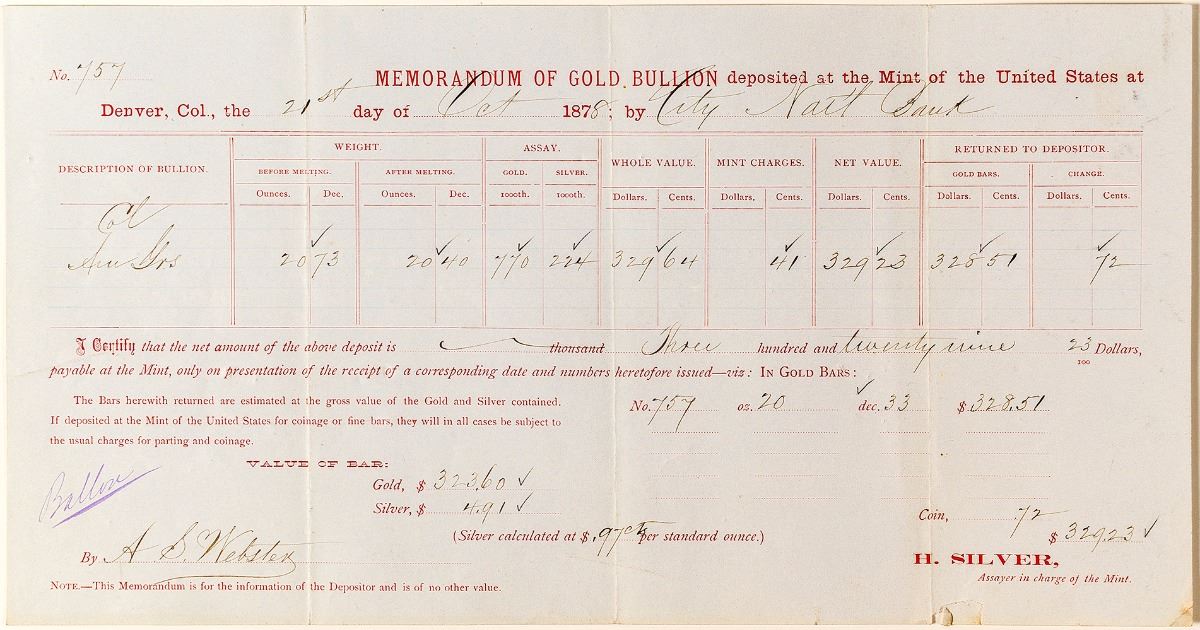 No. 757
MEMORANDUM OF GOLD BULLION deposited at the Mint of the United States at
Denver, Col., the 21st day of Oct 1878; by City Natl Bank
DESCRIPTION OF BULLION. WEIGHT. ASSAY. WHOLE VALUE. MINT CHARGES. NET VALUE. RETURNED TO DEPOSITOR.
BEFORE MELTING. AFTER MELTING. GOLD. SILVER. GOLD BARS. CHANGE.
Ounces. Dec. Ounces. Dec. 1000th. 1000th. Dollars. Cents. Dollars. Cents. Dollars. Cents. Dollars. Cents. Dollars. Cents.
Col
20 73 20 40 770 224 329 64 41 329 23 328 51 72
I Certify that the net amount of the above deposit is thousand Three hundred and twenty nine 23/100 Dollars,
payable at the Mint, only on presentation of the receipt of a corresponding date and numbers heretofore issued—viz: IN GOLD BARS:
The Bars herewith returned are estimated at the gross value of the Gold and Silver contained.
If deposited at the Mint of the United States for coinage or fine bars, they will in all cases be subject to
the usual charges for parting and coinage.
No. 757 oz. 20 dec. 33 $ 328.51
VALUE OF BAR:
Gold, $ 323.60
Silver, $ 4.91
(Silver calculated at $ .97 cts per standard ounce.)
Coin, 72
$ 329.23
By A S. Webster
H. SILVER,
Assayer in charge of the Mint.
NOTE.—This Memorandum is for the information of the Depositor and is of no other value.